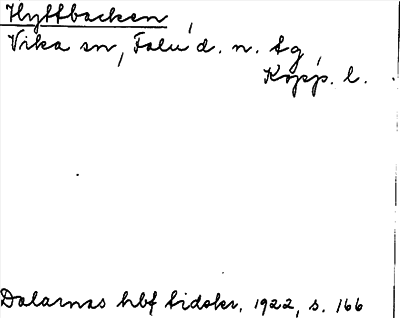 Hyttbacken,
Vika sn, Falu d. n. tg,
Kopp. l.
Dalarnas hbf tidskr. 1922, s. 166